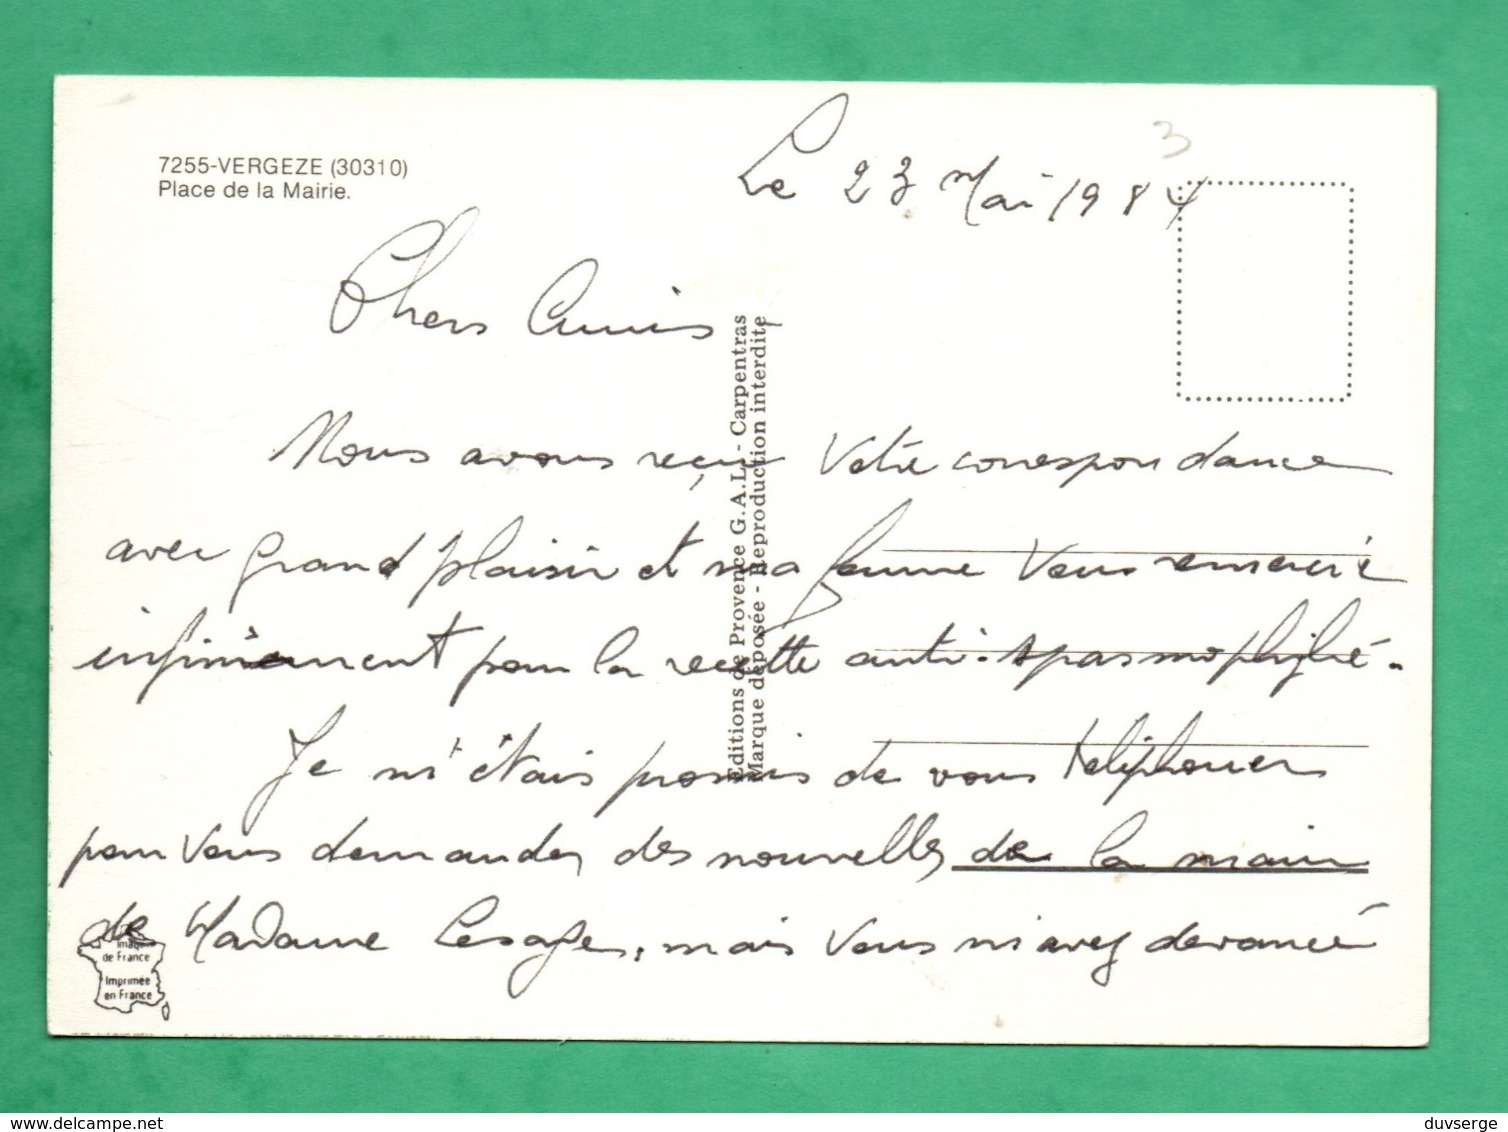 7255-VERGEZE (30310)
Place de la Mairie.
3
Le 23 Mai 1984
Chers Amis
Nous avons reçu votre correspondance
avec grand plaisir et ma femme vous remercie
infiniement pour la recette anti-spasmophylie.
Je m'étais promis de vous téléphoner
pour vous demander des nouvelles de la main
de Madame Lesage, mais vous m'avez devancé
Editions de Provence G.A.L. - Carpentras
Marque déposée - Reproduction interdite
Image
de France
Imprimée
en France
delcampe.net
duvserge